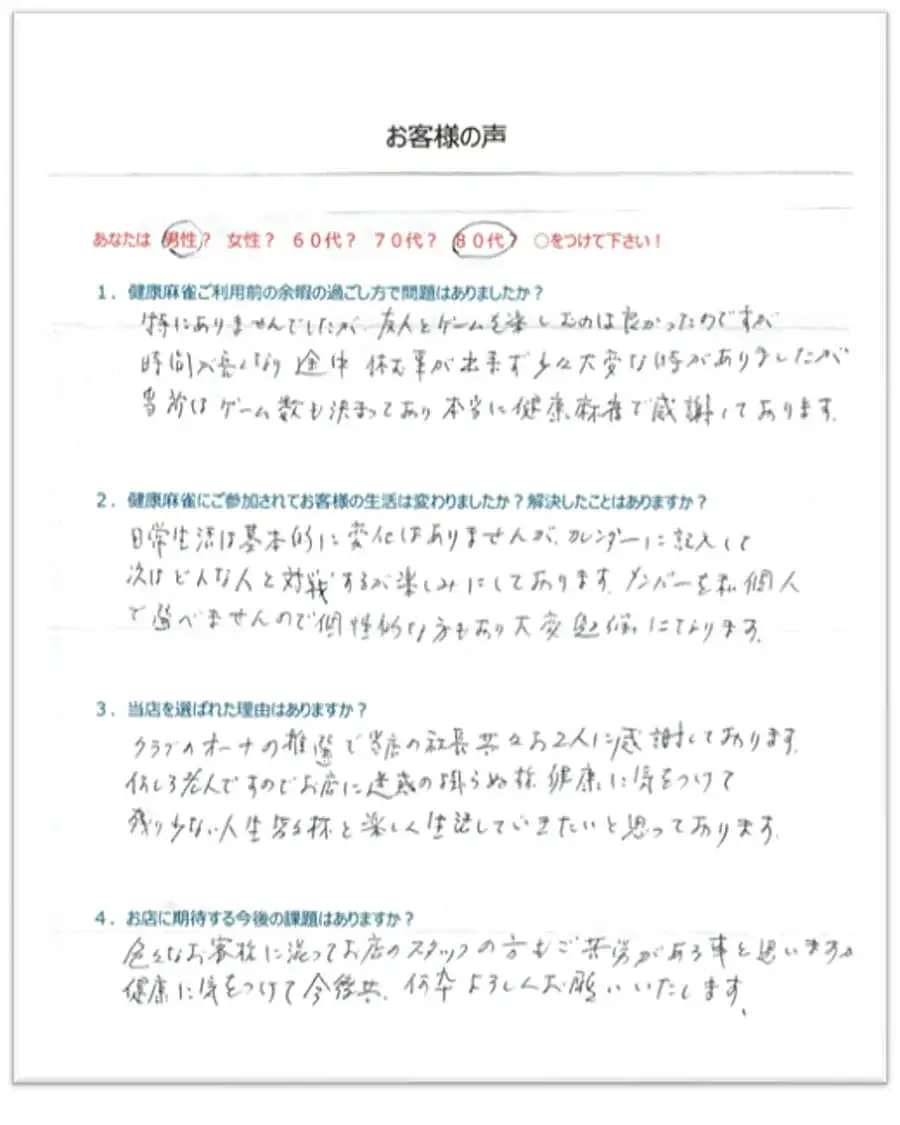 お客様の声
あなたは 男性? 女性? 60代? 70代? 80代? ○をつけて下さい!
1.健康麻雀ご利用前の余暇の過ごし方で問題はありましたか?
特にありませんでしたが、友人とゲームを楽しむのは良かったのですが
時間が長くなり 途中 休む事が出来ず 多々大変な時がありましたが
当所は ゲーム数も決まってあり 本当に健康麻雀で感謝してあります。
2.健康麻雀にご参加されてお客様の生活は変わりましたか?解決したことはありますか?
日常生活は基本的に変化はありませんが、カレンダーに記入して
次はどんな人と対戦するが楽しみにしております。メンバーを私個人
で選べませんので個性的な方もあり大変勉強にております。
3.当店を選ばれた理由はありますか?
クラブのオーナの推選で当店の社長共々お2人に感謝しております。
何しろ老人ですのでお店に迷惑の掛らぬ様 健康に気をつけて
残り少ない人生皆様と楽しく生活していきたいと思っております。
4.お店に期待する今後の課題はありますか?
色々なお客様に混ってお店のスタッフの方もご苦労がある事と思いますが
健康に気をつけて今後共、何卒よろしくお願いいたします、